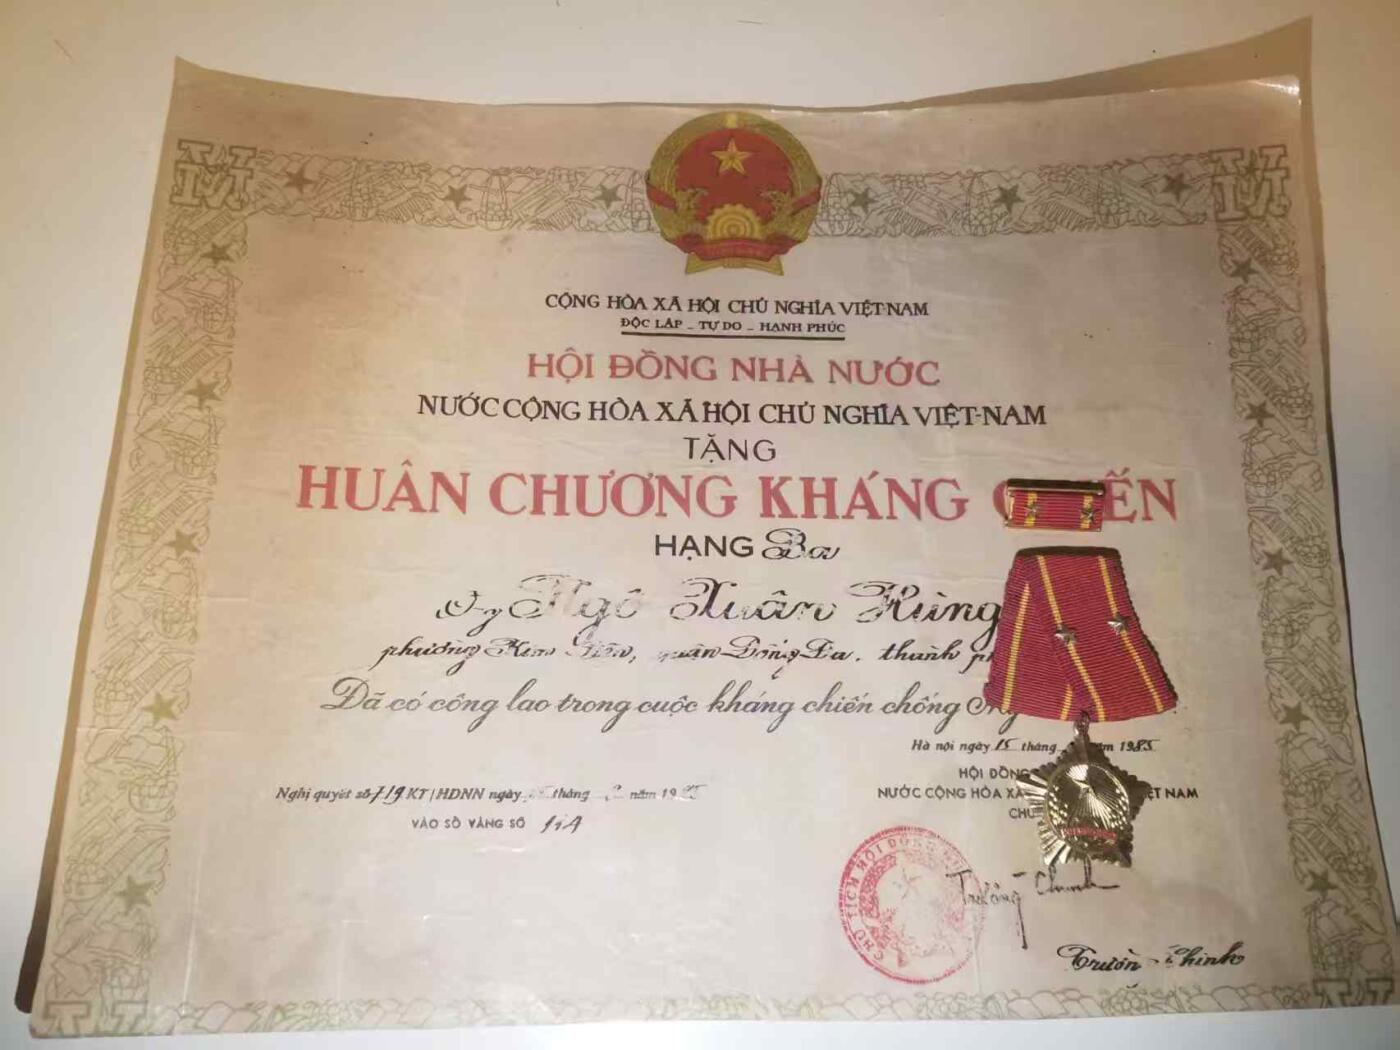 CỘNG HÒA XÃ HỘI CHỦ NGHĨA VIỆT-NAM
ĐỘC LẬP - TỰ DO - HẠNH PHÚC
HỘI ĐỒNG NHÀ NƯỚC
NƯỚC CỘNG HÒA XÃ HỘI CHỦ NGHĨA VIỆT-NAM
TẶNG
HUÂN CHƯƠNG KHÁNG
HẠNG Ba
Ông Ngô Xuân Hùng
phường Kim Liên, quận Đống Đa, thành
Đã có công lao trong cuộc kháng chiến chống
Hà nội ngày 15 tháng 1985
HỘI ĐỒNG
Nghị quyết số 719 KT/HĐNN ngày tháng năm 1985
NƯỚC CỘNG HÒA XÃ VIỆT NAM
VÀO SỔ VÀNG SỐ
CHỦ TỊCH HỘI ĐỒNG
Trường Chinh
Trường Chinh